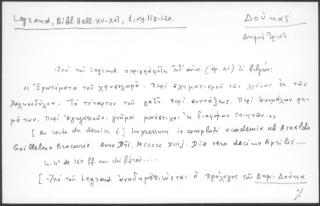 Legrand, Bibl Hell. XV-XVI, 1,
Δούκας
Δημήτριος
Ὑπὸ τοῦ Legrand περιγράφεται ὑπ' ἀριθ. τὸ βιβλίον:
« Ἐρωτήματα τοῦ χρυσολωρᾶ. Περὶ σχηματισμοῦ τῶν χρόνων ἐκ τῶν
Χαλκονδύλου. Τὸ τέταρτον τοῦ γαζῆ περὶ συντάξεως. Περὶ ἀνωμάλων ῥη-
μάτων. Περὶ ἐγκλιτικῶν. γνῶμαι μονόστιχοι ἐκ διαφόρων ποιητῶν.»
[ Au recto du dernier f.] Impressum in compluti academia ab Arnaldo
Guillelmo Brocario. Anno Dñi. Die vero decimo Aprilis...
In 4º de ff. non chiffrés...
[ Ὑπὸ τοῦ Legrand ἀναδημοσιεύεται ὁ πρόλογος τοῦ Δημ. Δούκα